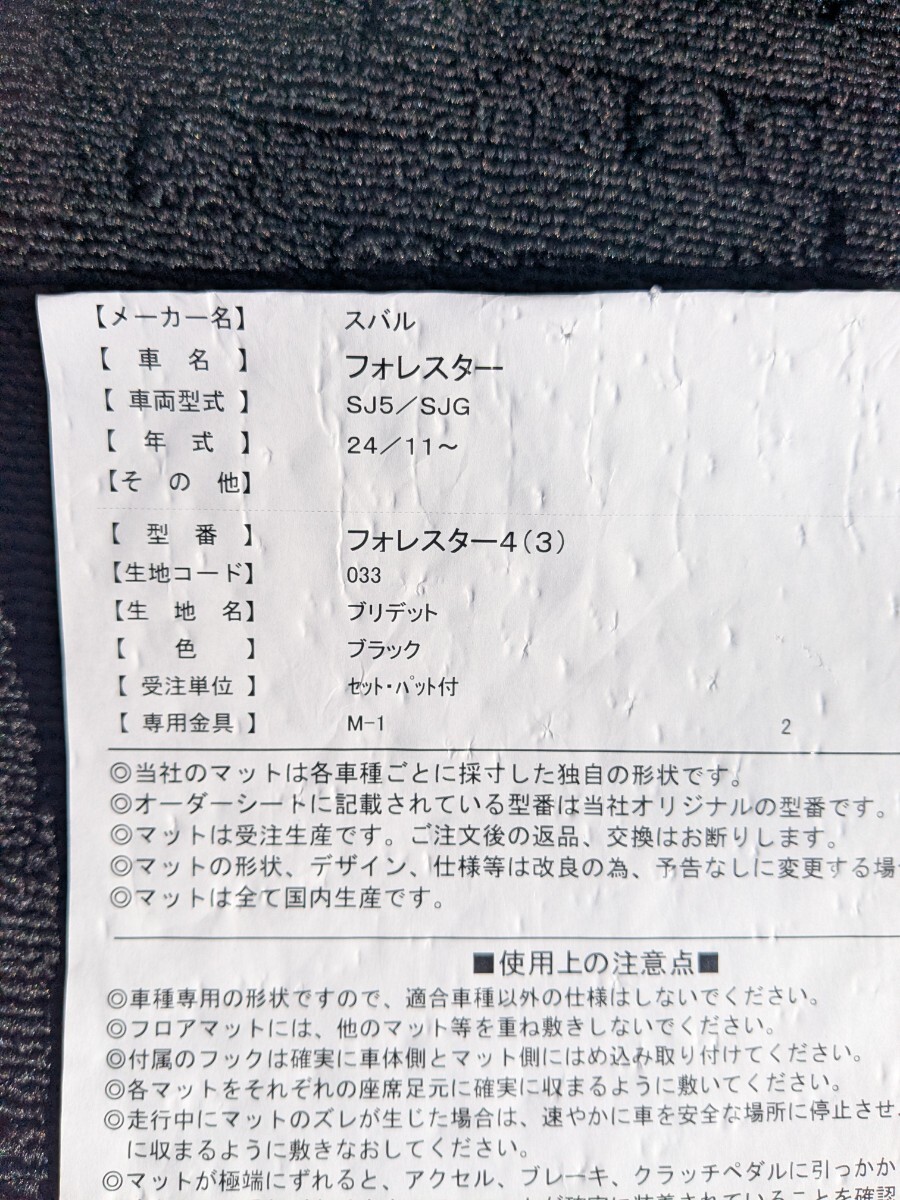 【メーカー名】 スバル
【 車 名 】 フォレスター
【 車両型式 】 SJ5／SJG
【 年 式 】 24／11～
【そ の 他】
【 型 番 】 フォレスター4(3)
【生地コード】 033
【生 地 名】 ブリデット
【 色 】 ブラック
【 受注単位 】 ｾｯﾄ・ﾊﾟｯﾄ付
【 専用金具 】 M-1 2
◎当社のマットは各車種ごとに採寸した独自の形状です。
◎オーダーシートに記載されている型番は当社オリジナルの型番です。
◎マットは受注生産です。ご注文後の返品、交換はお断りします。
◎マットの形状、デザイン、仕様等は改良の為、予告なしに変更する場
◎マットは全て国内生産です。
■使用上の注意点■
◎車種専用の形状ですので、適合車種以外の仕様はしないでください。
◎フロアマットには、他のマット等を重ね敷きしないでください。
◎付属のフックは確実に車体側とマット側にはめ込み取り付けてください。
◎各マットをそれぞれの座席足元に確実に収まるように敷いてください。
◎走行中にマットのズレが生じた場合は、速やかに車を安全な場所に停止させ、
に収まるように敷きなおしてください。
◎マットが極端にずれると、アクセル、ブレーキ、クラッチペダルに引っかか
が確実に装着されていることを確認